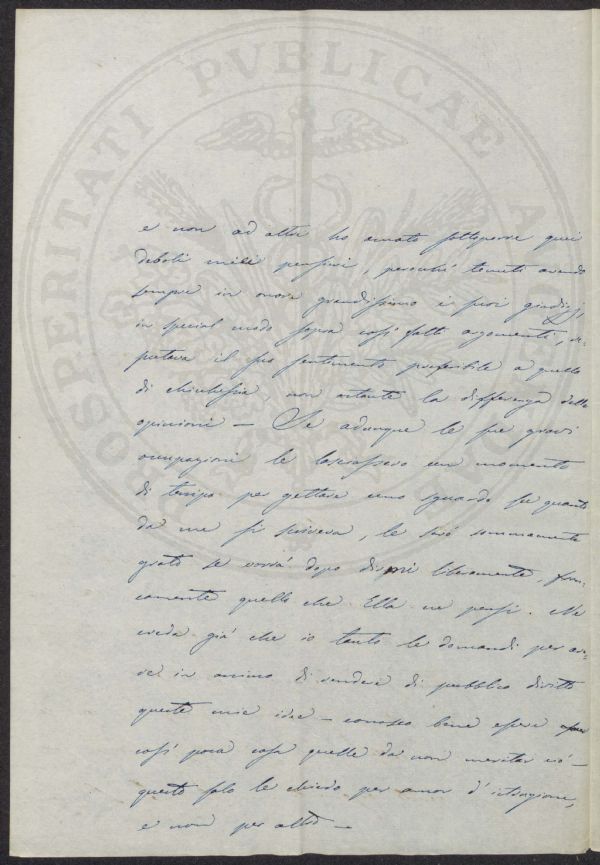 PROSPERITATI PVBLICAE
e non ad altri ho amato sottoporre quei
deboli miei pensieri, perocchè tenuti avendo
sempre in onore grandissimo i suoi giudizj,
in special modo sopra così fatti argomenti, ri-
putava il suo sentimento preferibile a quello
di chicchessia, non ostante la differenza delle
opinioni — Se adunque le sue gravi
occupazioni le lasciassero un momento
di tempo per gettare uno sguardo su quanto
da me si scriveva, le sarò sommamente
grato se vorrà dopo dirmi liberamente, fran-
camente quello che Ella ne pensi. Ne
creda già che io tanto le domandi per ave-
re in animo di rendere di pubblico diritto
queste mie idee — conosco bene essere
così poca cosa quelle da non meritar ciò —
questo solo le chiedo per amor d'istruzione,
e non per altro —